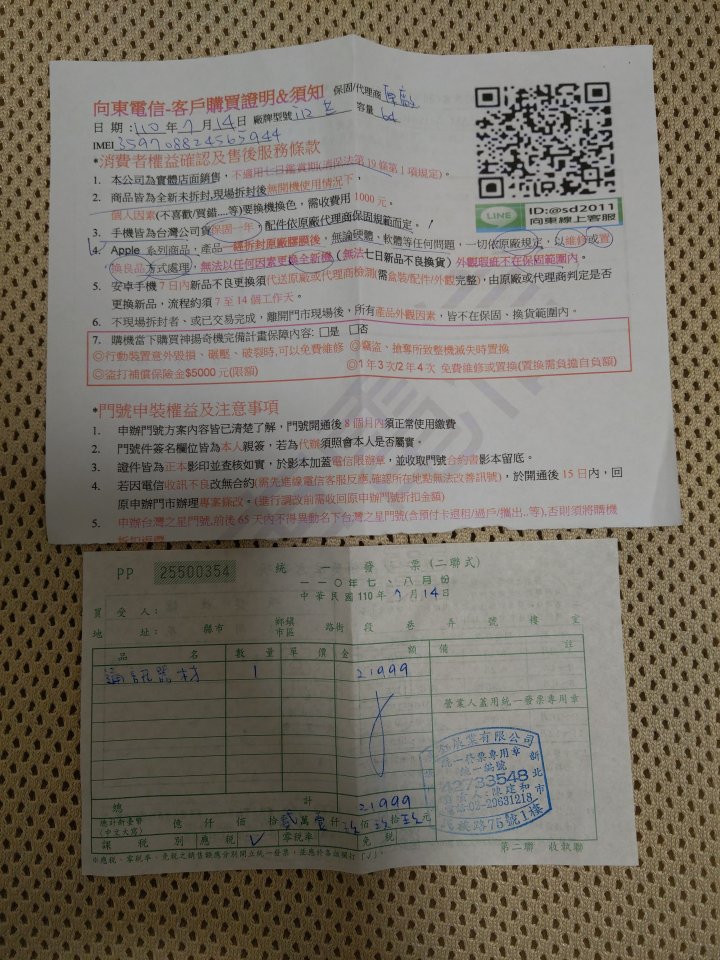 向東電信-客戶購買證明&須知 保固/代理商 原廠
日 期：110 年 7 月 14 日 廠牌型號 i12 容量 64
IMEI 359708824565944
*消費者權益確認及售後服務條款
1. 本公司為實體店面銷售，不適用七日鑑賞期(消保法第 19 條第 1 項規定)。
2. 商品皆為全新未拆封,現場拆封後無開機使用情況下，
個人因素(不喜歡/買錯....等)要換機換色，需收費用 1000 元。
3. 手機皆為台灣公司貨保固一年，配件依原廠代理商保固規範而定。
4. Apple 系列商品，產品一經拆封原廠膠膜後，無論硬體、軟體等任何問題，一切依原廠規定，以維修或置
換良品方式處理，無法以任何因素更換全新機 (無法七日新品不良換貨) 外觀瑕疵不在保固範圍內。
5. 安卓手機 7 日內新品不良更換須代送原廠或代理商檢測(需盒裝/配件/外觀完整)，由原廠或代理商判定是否
更換新品，流程約須 7 至 14 個工作天。
6. 不現場拆封者、或已交易完成，離開門市現場後，所有產品外觀因素，皆不在保固、換貨範圍內。
7. 購機當下購買神揚奇機完備計畫保障內容: □是 □否
◎行動裝置意外毀損、碾壓、破裂時,可以免費維修 ◎竊盜、搶奪所致整機滅失時置換
◎盜打補償保險金$5000 元(限額) ◎1 年 3 次/2 年 4 次 免費維修或置換(置換需負擔自負額)
ID:@sd2011
LINE 向東線上客服
*門號申裝權益及注意事項
1. 申辦門號方案內容皆已清楚了解，門號開通後 8 個月內須正常使用繳費
2. 門號件簽名欄位皆為本人親簽，若為代辦須照會本人是否屬實。
3. 證件皆為正本影印並查核如實，於影本加蓋電信限辦章，並收取門號合約書影本留底。
4. 若因電信收訊不良改無合約(需先進線電信客服反應,確認所在地點無法改善訊號)，於開通後 15 日內，回
原申辦門市辦理專案條改。(進行調改前需收回原申辦門號折扣金額)
5. 申辦台灣之星門號,前後 65 天內不得異動名下台灣之星門號(含預付卡退租/過戶/攜出..等),否則須將購機
折扣返還
PP 25500354 統一發票(二聯式)
一一〇年七、八月份
中華民國 110 年 7 月 14 日
買 受 人：
地 址： 縣市 鄉鎮市區 路街 段 巷 弄 號 樓 室
品 名 數 量 單 價 金 額 備 註
通訊器材 1 21999
營業人蓋用統一發票專用章
展業有限公司
統一發票專用章
統一編號
42733548
陳建和
02-29631218
新北市
路75號1樓
總 計 21999
總計新臺幣(中文大寫) 億 仟 佰 拾 貳 萬 壹 仟 玖 佰 玖 拾 玖 元
課 稅 別 應 稅 V 零稅率 免 稅
※應稅、零稅率、免稅之銷售額應分別開立統一發票，並應於各該欄打「✓」。
第二聯 收執聯